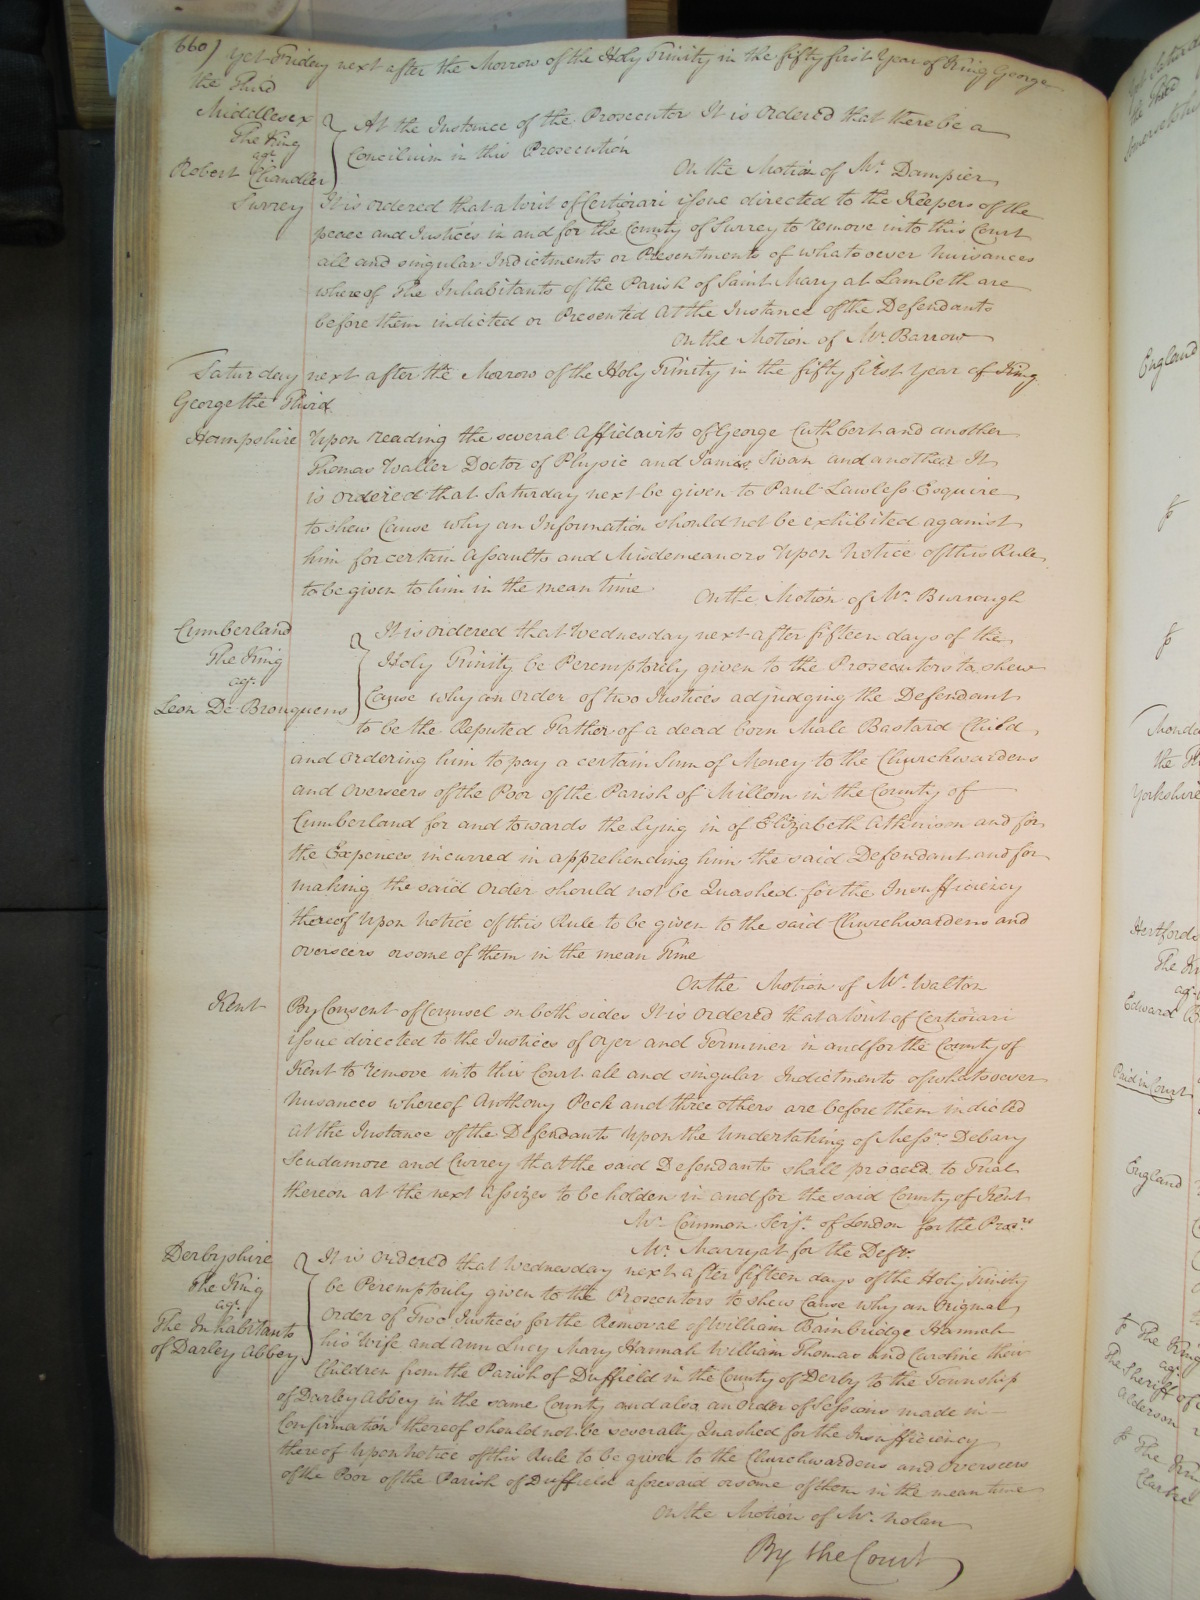 660) Yet Friday next after the Morrow of the Holy Trinity in the fifty first Year of King George
the Third
Middlesex
The King
agt.
Robert Chandler
At the Instance of the Prosecutor It is Ordered that there be a
Concilium in this Prosecution
On the Motion of Mr. Dampier
Surrey It is ordered that a Writ of Certiorari issue directed to the Keepers of the
peace and Justices in and for the County of Surrey to remove into this Court
all and singular Indictments or Presentments of whatsoever Nuisances
whereof The Inhabitants of the Parish of Saint Mary at Lambeth are
before them indicted or Presented At the Instance of the Defendants
On the Motion of Mr. Barrow
Saturday next after the Morrow of the Holy Trinity in the fifty first Year of King
George the Third
Hampshire Upon reading the several Affidavits of George Cuthbert and another
Thomas Waller Doctor of Physic and James Swan and another It
is ordered that Saturday next be given to Paul Lawless Esquire
to shew Cause why an Information should not be exhibited against
him for certain Assaults and Misdemeanors Upon Notice of this Rule
to be given to him in the mean time
On the Motion of Mr. Burrough
Cumberland
The King
agt.
Leon De Bronquens
It is ordered that Wednesday next after fifteen days of the
Holy Trinity be Peremptorily given to the Prosecutors to shew
Cause why an order of two Justices adjudging the Defendant
to be the Reputed Father of a dead born Male Bastard Child
and ordering him to pay a certain Sum of Money to the Churchwardens
and Overseers of the Poor of the Parish of Millom in the County of
Cumberland for and towards the Lying in of Elizabeth Atkinson and for
the Expences incurred in apprehending him the said Defendant and for
making the said Order should not be Quashed for the Insufficiency
thereof Upon Notice of this Rule to be given to the said Churchwardens and
Overseers or some of them in the mean Time
On the Motion of Mr. Walton
Kent By Consent of Counsel on both sides It is ordered that a Writ of Certiorari
issue directed to the Justices of Oyer and Terminer in and for the County of
Kent to remove into this Court all and singular Indictments of whatsoever
Nusances whereof Anthony Peck and three others are before them indicted
At the Instance of the Defendants Upon the Undertaking of Messrs. Debary
Scudamore and Currey that the said Defendants shall proceed to Trial
thereon at the next Assizes to be holden in and for the said County of Kent
Mr. Common Serjt. of London for the Prosrs
Mr. Marryat for the Defts.
Derbyshire
The King
agt.
The Inhabitants
of Darley Abbey
It is Ordered that Wednesday next after fifteen days of the Holy Trinity
be Peremptorily given to the Prosecutors to shew Cause why an Original
Order of Two Justices for the Removal of William Bainbridge Hannah
his Wife and Ann Lucy Mary Hannah William Thomas and Caroline their
Children from the Parish of Duffield in the County of Derby to the Township
of Darley Abbey in the same County and also an Order of Sessions made in
Confirmation thereof should not be severally Quashed for the Insufficiency
thereof Upon Notice of this Rule to be given to the Churchwardens and Overseers
of the Poor of the Parish of Duffield aforesaid or some of them in the mean time
On the Motion of Mr. Nolan
By the Court
England
Yorkshire
Paid in Court
England
The King
agt.
The Sheriff of
Alderson